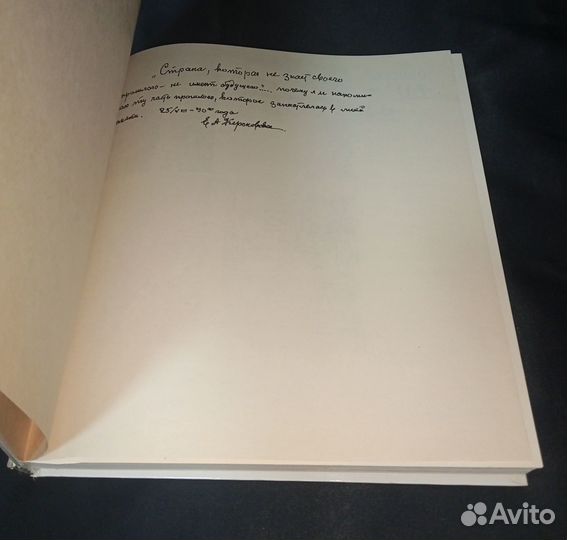 „Страна, которая не знает своего
прошлого - не имеет будущего"... почему я и напоми-
наю ту часть прошлого, которое запечатлелась в моей
памяти. 25/VIII - 90го года
Avito